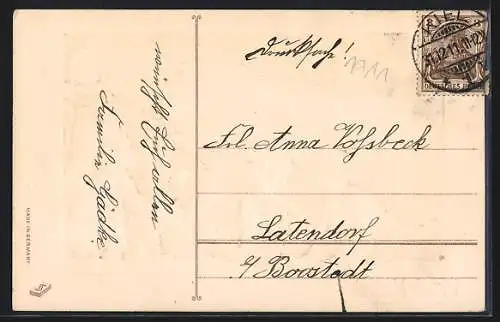 wünscht Euch allen
Familie Gädke.
MADE IN GERMANY
Drucksache!
1911
KIEL
31.12.11.
DEUTSCHES REICH
Frl. Anna Voßbeck
Latendorf
b/ Boostedt